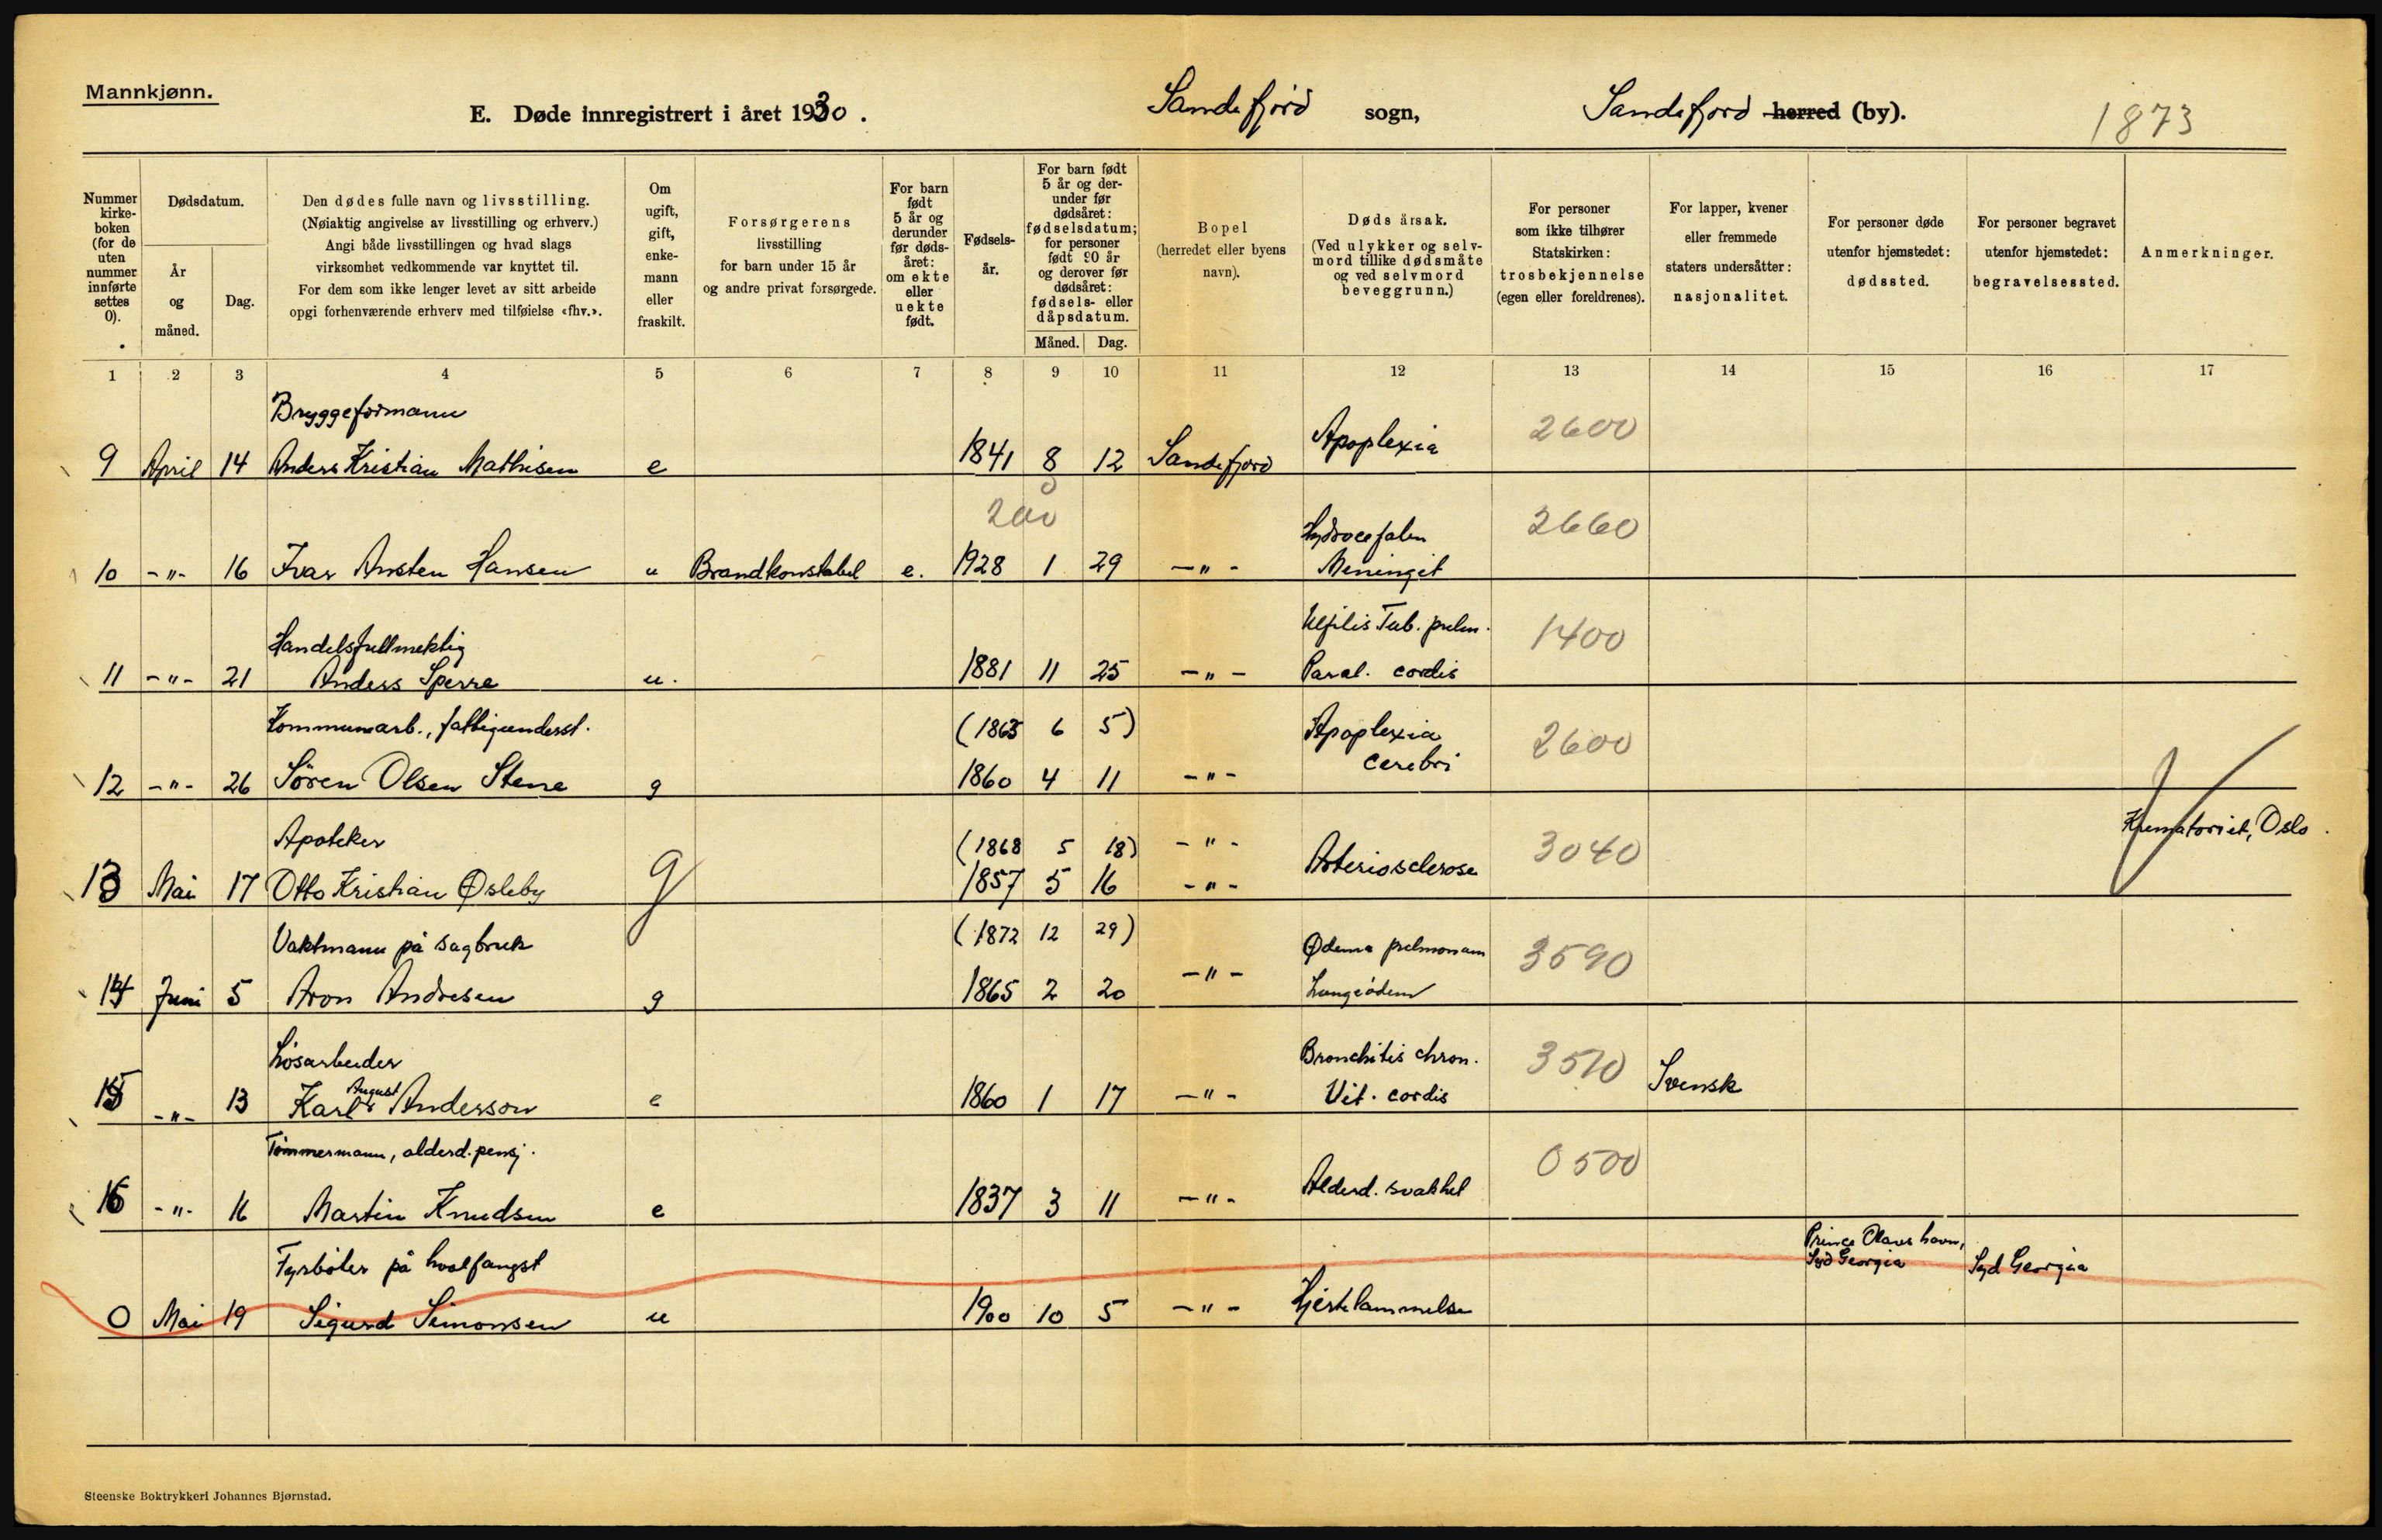 Mannkjønn.
E. Døde innregistrert i året 1930. Sandefjord sogn, Sandefjord herred (by). 1873
Nummer kirke-boken (for de uten nummer innførte settes 0).
Dødsdatum.
År og måned.
Dag.
Den dødes fulle navn og livsstilling.
(Nøiaktig angivelse av livsstilling og erhverv.)
Angi både livsstillingen og hvad slags
virksomhet vedkommende var knyttet til.
For dem som ikke lenger levet av sitt arbeide
opgi forhenværende erhverv med tilføielse «fhv.».
Om ugift, gift, enke-mann eller fraskilt.
Forsørgerens
livsstilling
for barn under 15 år
og andre privat forsørgede.
For barn født 5 år og derunder før døds-året: om ekte eller uekte født.
Fødsels-år.
For barn født 5 år og der-under før dødsåret: fødselsdatum; for personer født 90 år og derover før dødsåret: fødsels- eller dåpsdatum.
Måned. Dag.
Bopel
(herredet eller byens
navn).
Døds årsak.
(Ved ulykker og selv-
mord tillike dødsmåte
og ved selvmord
beveggrunn.)
For personer
som ikke tilhører
Statskirken:
trosbekjennelse
(egen eller foreldrenes).
For lapper, kvener
eller fremmede
staters undersåtter:
nasjonalitet.
For personer døde
utenfor hjemstedet:
dødssted.
For personer begravet
utenfor hjemstedet:
begravelsessted.
Anmerkninger.
1 2 3 4 5 6 7 8 9 10 11 12 13 14 15 16 17
Bryggeformann
9 April 14 Anders Kristian Mathisen e 1841 8 12 Sandefjord Apoplexia 2600
200 Hydrocefalen 2660
10 -"- 16 Ivar Ansten Hansen u Brandkonstabel e. 1928 1 29 -"- Meningit
Handelsfullmektig Tub. pulm. 1400
11 -"- 21 Anders Sperre u. 1881 11 25 -"- Paral. cordis
Kommunearb., fattigunderst. (1863 6 5) Apoplexia 2600
12 -"- 26 Søren Olsen Stene g 1860 4 11 -"- cerebri
Apoteker (1868 5 18) -"- 3040 Krematoriet, Oslo.
13 Mai 17 Otto Kristian Øsleby g 1857 5 16 -"- Arteriosclerose
Vaktmann på sagbruk (1872 12 29) Ødema pulmonum 3590
14 Juni 5 Aron Andresen g 1865 2 20 -"- Lungeødem
Løsarbeider Bronchitis chron. 3570 Svensk
15 -"- 13 Karl August Anderson e 1860 1 17 -"- Vit. cordis
Tømmermann, alderd.pensj. 0500
16 -"- 16 Martin Knudsen e 1837 3 11 -"- Alderd. svakhet
Fyrbøter på hvalfangst Prince Olavs havn, Syd Georgia Syd Georgia
0 Mai 19 Sigurd Simonsen u 1900 10 5 -"- Hjertelammelse
Steenske Boktrykkeri Johannes Bjørnstad.